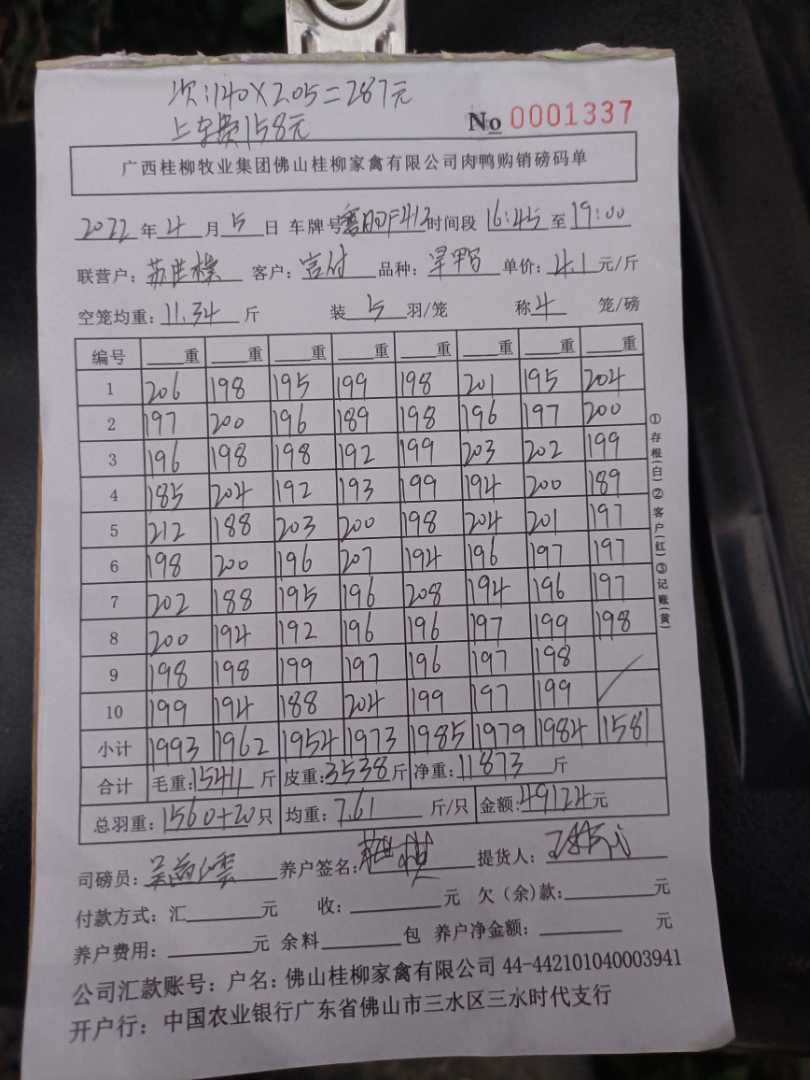 次:140×2.05=287元
上车费158元
No 0001337
广西桂柳牧业集团佛山桂柳家禽有限公司肉鸭购销磅码单
2022年4月5日 车牌号 F413 时间段 16:45至19:00
联营户: 苏世樸 客户: 宫付 品种: 旱鸭 单价: 4.1元/斤
空笼均重: 11.34斤 装5羽/笼 称4笼/磅
编号 重 重 重 重 重 重 重 重
1 206 198 195 199 198 201 195 204
2 197 200 196 189 198 196 197 200
3 196 198 198 192 199 203 202 199
4 185 204 192 193 199 194 200 189
5 212 188 203 200 198 204 201 197
6 198 200 196 207 194 196 197 197
7 202 188 195 196 208 194 196 197
8 200 194 192 196 196 197 199 198
9 198 198 199 197 196 197 198
10 199 194 188 204 199 197 199
小计 1993 1962 1954 1973 1985 1979 1984 1581
合计 毛重:15411斤 皮重:3538斤 净重:11873斤
总羽重:1560+20只 均重:7.61斤/只 金额:49124元
①存根(白)②客户(红)③记账(黄)
司磅员: 养户签名: 提货人:
付款方式:汇 元 收: 元 欠(余)款: 元
养户费用: 元 余料 包 养户净金额: 元
公司汇款账号:户名:佛山桂柳家禽有限公司 44-442101040003941
开户行:中国农业银行广东省佛山市三水区三水时代支行